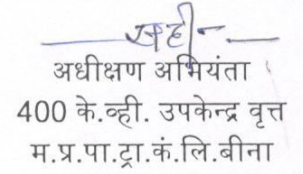 सही
अधीक्षण अभियंता
400 के.व्ही. उपकेन्द्र वृत्त
म.प्र.पा.ट्रा.कं.लि.बीना